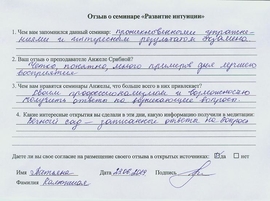 Отзыв о семинаре «Развитие интуиции»
1. Чем вам запомнился данный семинар: проникновенными упражне-
ниями и интересным результатом экзамена
2. Ваш отзыв о преподавателе Анжеле Срибной?
Четко, понятно, много примеров для лучшего
восприятия
3. Чем вам нравится семинары Анжелы, что больше всего в них привлекает?
Своим профессионализмом и возможностью
получить ответы на волнующие вопросы.
4. Какие интересные открытия вы сделали в эти дни, какую информацию получили в медитации:
сад – ответа на вопрос
Даете ли вы свое согласие на размещение своего отзыва в открытых источниках: да нет
Имя Татьяна Дата 2017 Подпись
Фамилия